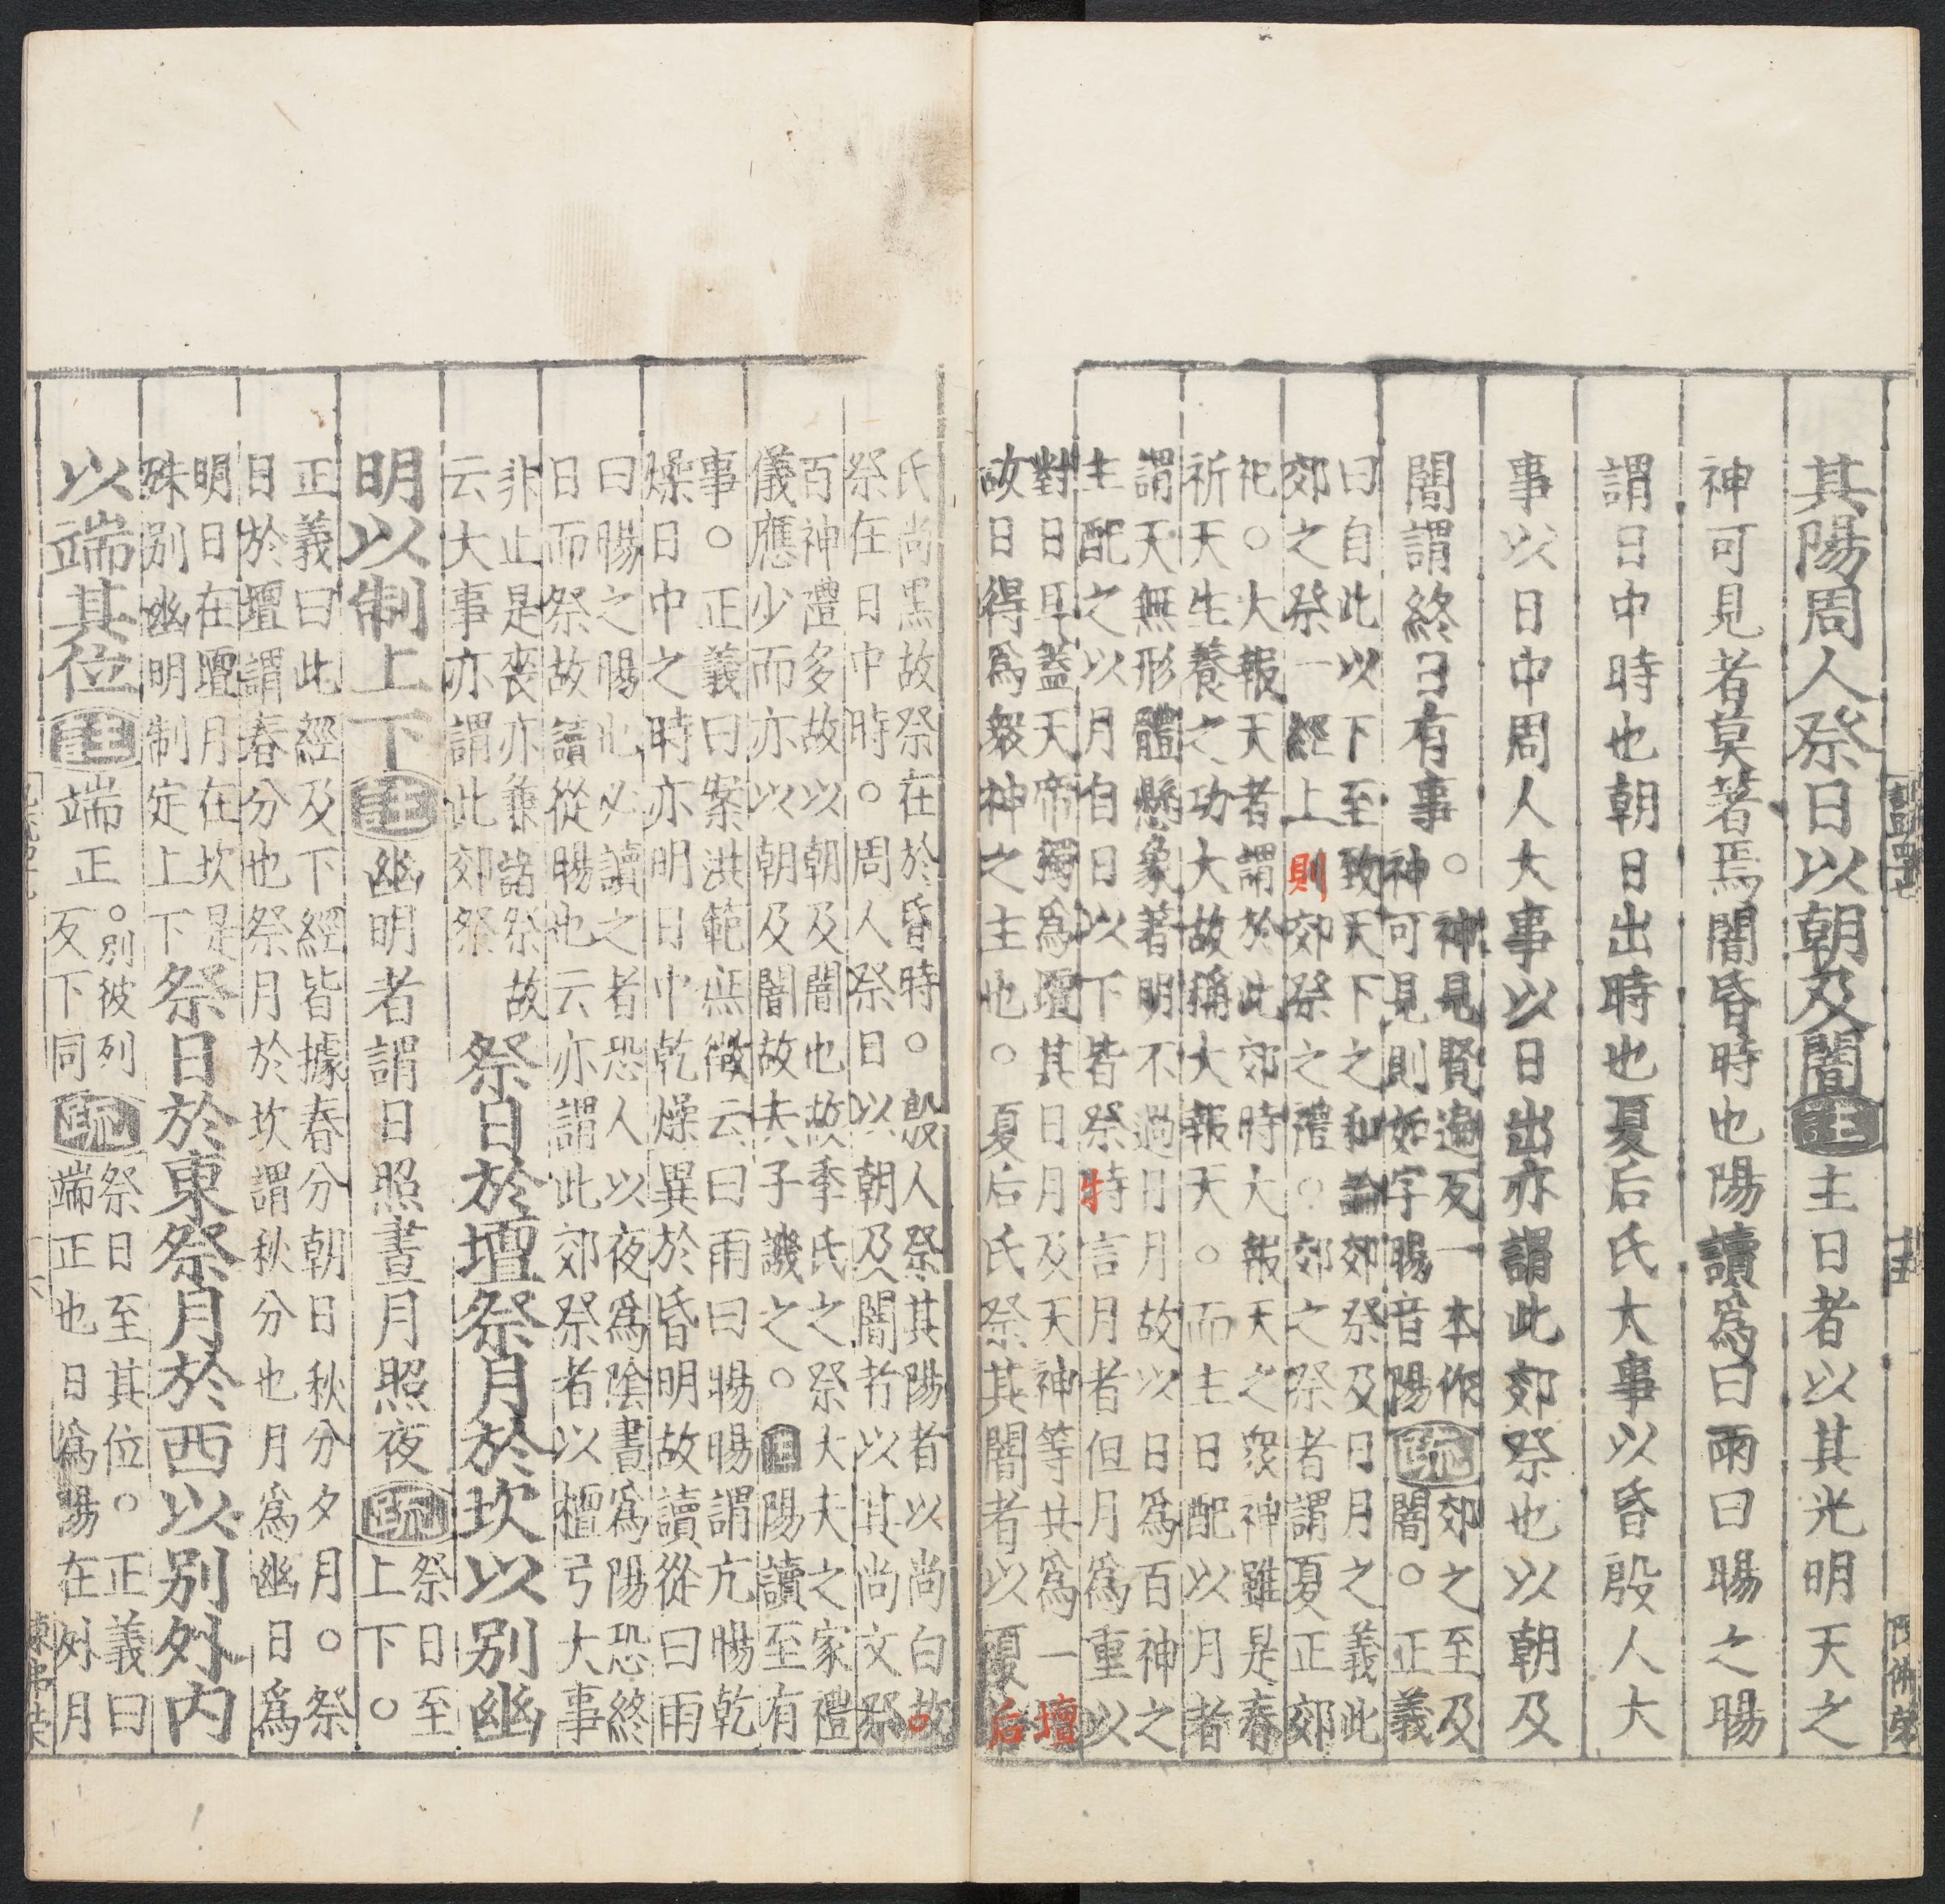 其陽周人祭日以朝及闇註主日者以其光明天之
神可見者莫著焉闇昏時也陽讀爲曰雨曰暘之暘
謂日中時也朝日出時也夏后氏大事以昏殷人大
事以日中周人大事以日出亦謂此郊祭也以朝及
闇謂終日有事○神見賢遍反一本作
神可見則如字暘音陽疏郊之至及
闇○正義
曰自此以下至致天下之和論郊祭及日月之義此
郊之祭一經上則郊祭之禮○郊之祭者謂夏正郊
祀○大報天者謂於此郊時大報天之衆神雖是春
祈天生養之功大故稱大報天○而主日配以月者
謂天無形體懸象著明不過日月故以日爲百神之
主配之以月自日以下皆祭特言月者但月爲重以
對日耳蓋天帝獨爲壇其日月及天神等共爲一壇
故日得爲衆神之主也○夏后氏祭其闇者以夏后
氏尚黑故祭在於昏時○殷人祭其陽者以尚白故
祭在日中時○周人祭日以朝及闇者以其尚文祭
百神禮多故以朝及闇也故季氏之祭大夫之家禮
儀應少而亦以朝及闇故夫子譏之○註陽讀至有
事○正義曰案洪範庶徵云曰雨曰暘暘謂亢暘乾
燥日中之時亦明日中乾燥異於昏明故讀從曰雨
曰暘之暘也必讀之者恐人以夜爲陰晝爲陽恐終
日而祭故讀從暘也云亦謂此郊祭者以檀弓大事
非止是喪亦兼諸祭故
云大事亦謂此郊祭
祭日於壇祭月於坎以別幽
明以制上下註幽明者謂日照晝月照夜疏祭日至
上下○
正義曰此經及下經皆據春分朝日秋分夕月○祭
日於壇謂春分也祭月於坎謂秋分也月爲幽日爲
明日在壇月在坎是
殊別幽明制定上下
祭日於東祭月於西以別外内
以端其位註端正○別彼列
反下同疏祭日至其位○正義曰
端正也日爲陽在外月